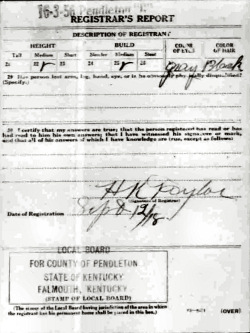 16-3-56 Pendleton "C"
REGISTRAR'S REPORT
DESCRIPTION OF REGISTRANT
HEIGHT BUILD COLOR OF EYES COLOR OF HAIR
Tall Medium Short Slender Medium Stout
21 22 23 24 25 26 27 Gray 28 Black
29 Has person lost arm, leg, hand, eye, or is he
(Specify)
30 I certify that my answers are true; that the person registered has read or has
had read to him his own answers; that I have witnessed his signature or mark;
and that all of his answers of which I have knowledge are true, except as follows:
H K Taylor
(Signature of Registrar)
Date of Registration Sept 12/18
LOCAL BOARD
FOR COUNTY OF PENDLETON
STATE OF KENTUCKY
FALMOUTH, KENTUCKY
(STAMP OF LOCAL BOARD)
(The stamp of the Local Board having jurisdiction of the area in which
the registrant has his permanent home shall be placed in this box.)
(OVER)